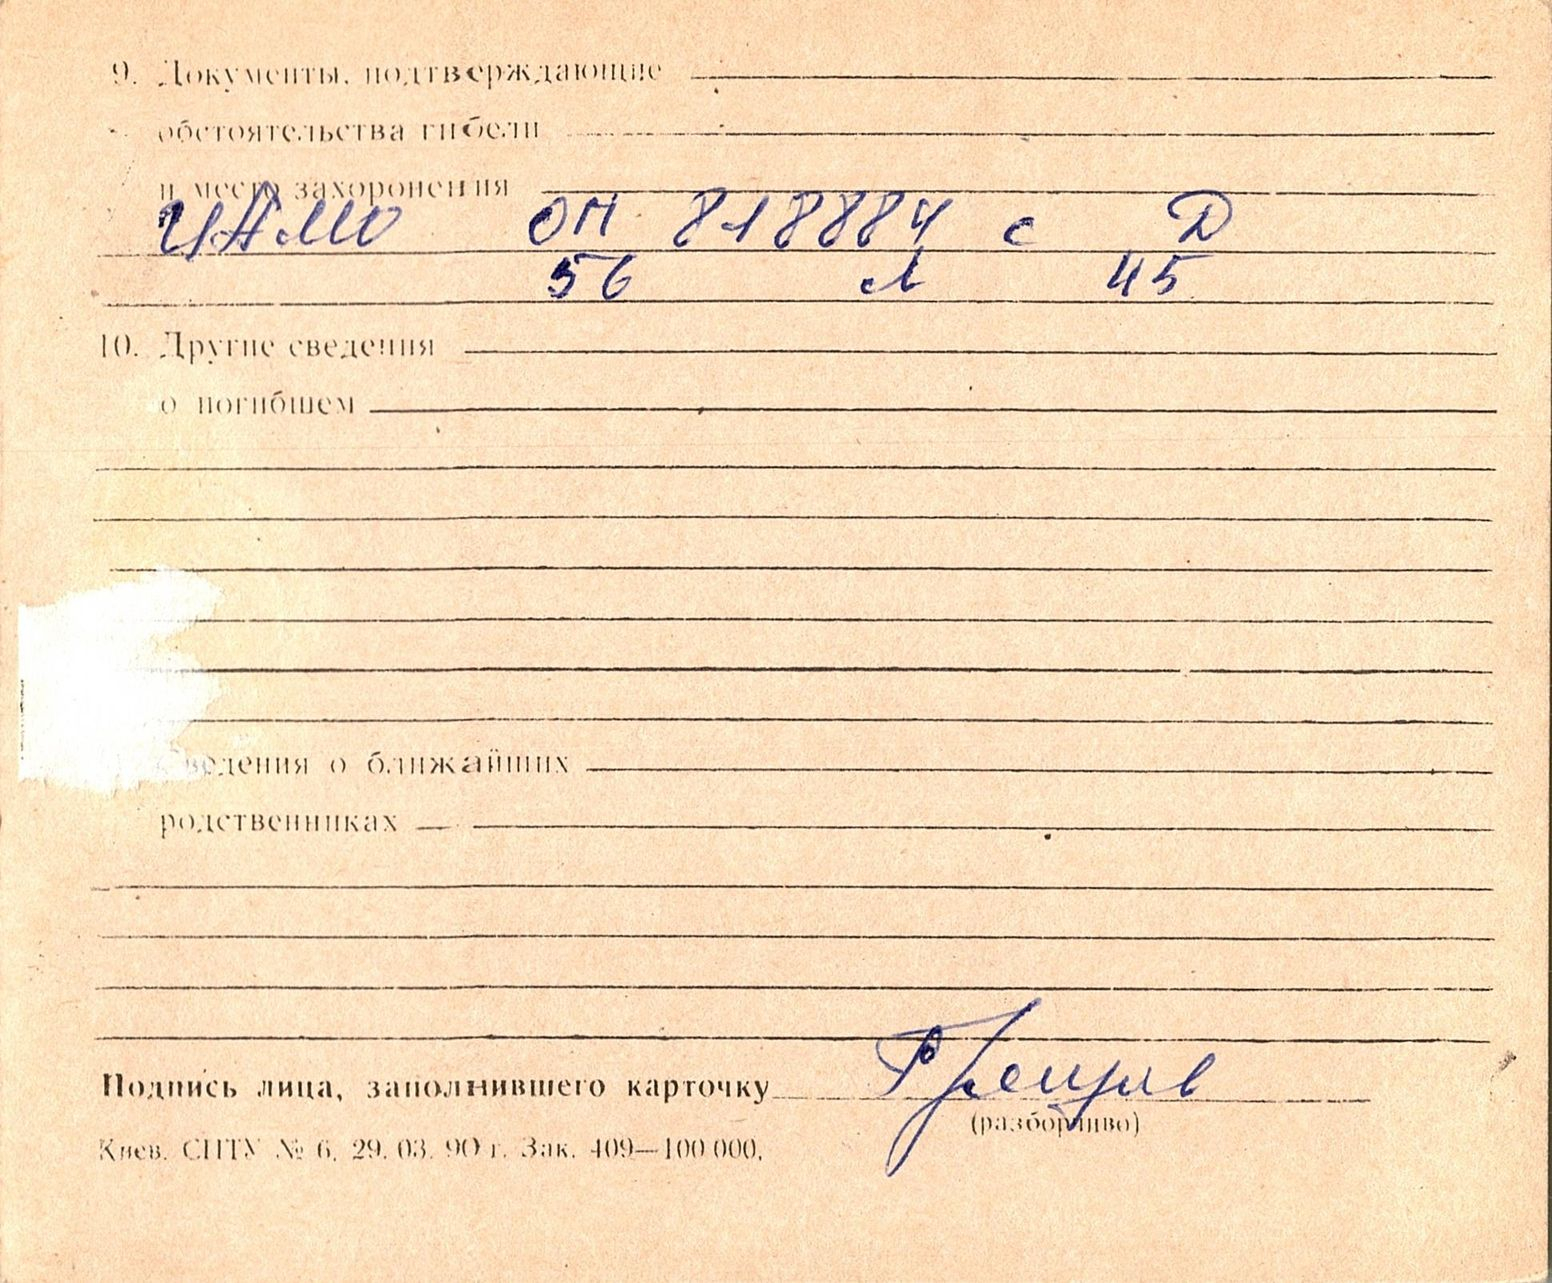 9. Документы, подтверждающие
обстоятельства гибели
и место захоронения
ЦАМО оп 818884 с Д
56 л 45
10. Другие сведения
о погибшем
Сведения о ближайших
родственниках
Подпись лица, заполнившего карточку
(разборчиво)
Киев. СПТУ № 6. 29. 03. 90 г. Зак. 409—100 000.